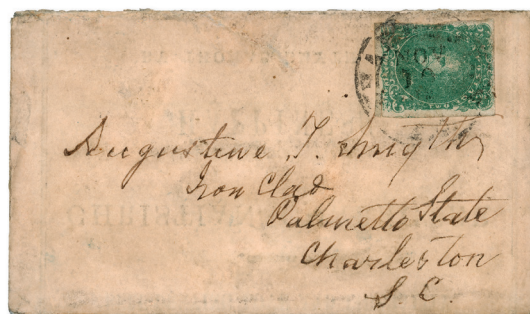 Augustine T. Smythe
Iron Clad
Palmetto State
Charleston
S. C.